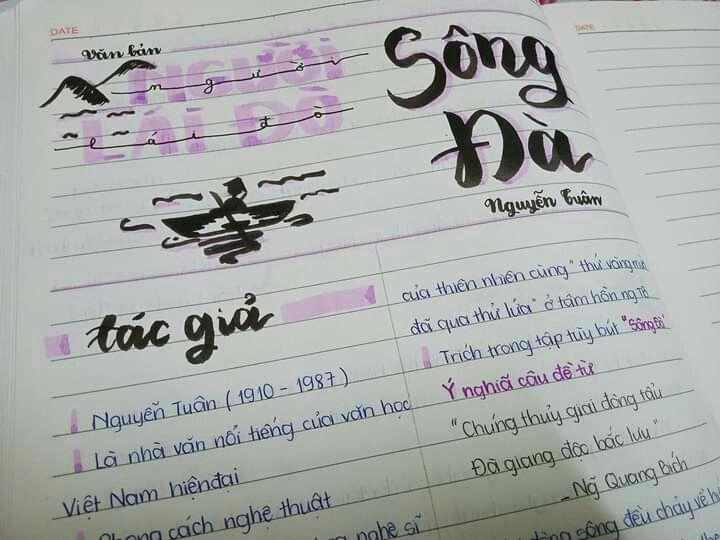 DATE
Văn bản
NGƯỜI
người
LÁI ĐÒ
lái đò
Sông
Đà
Nguyễn Tuân
tác giả
Nguyễn Tuân (1910 - 1987)
Là nhà văn nổi tiếng của văn học
Việt Nam hiện đại
Phong cách nghệ thuật
nghệ sĩ
của thiên nhiên cùng "thứ vàng mười
đã qua thử lửa" ở tâm hồn ng TB
Trích trong tập tùy bút "Sông Đà"
Ý nghĩa câu đề từ
"Chúng thủy giai đông tẩu
Đà giang độc bắc lưu"
- Ng Quang Bích
dòng sông đều chảy về
DATE